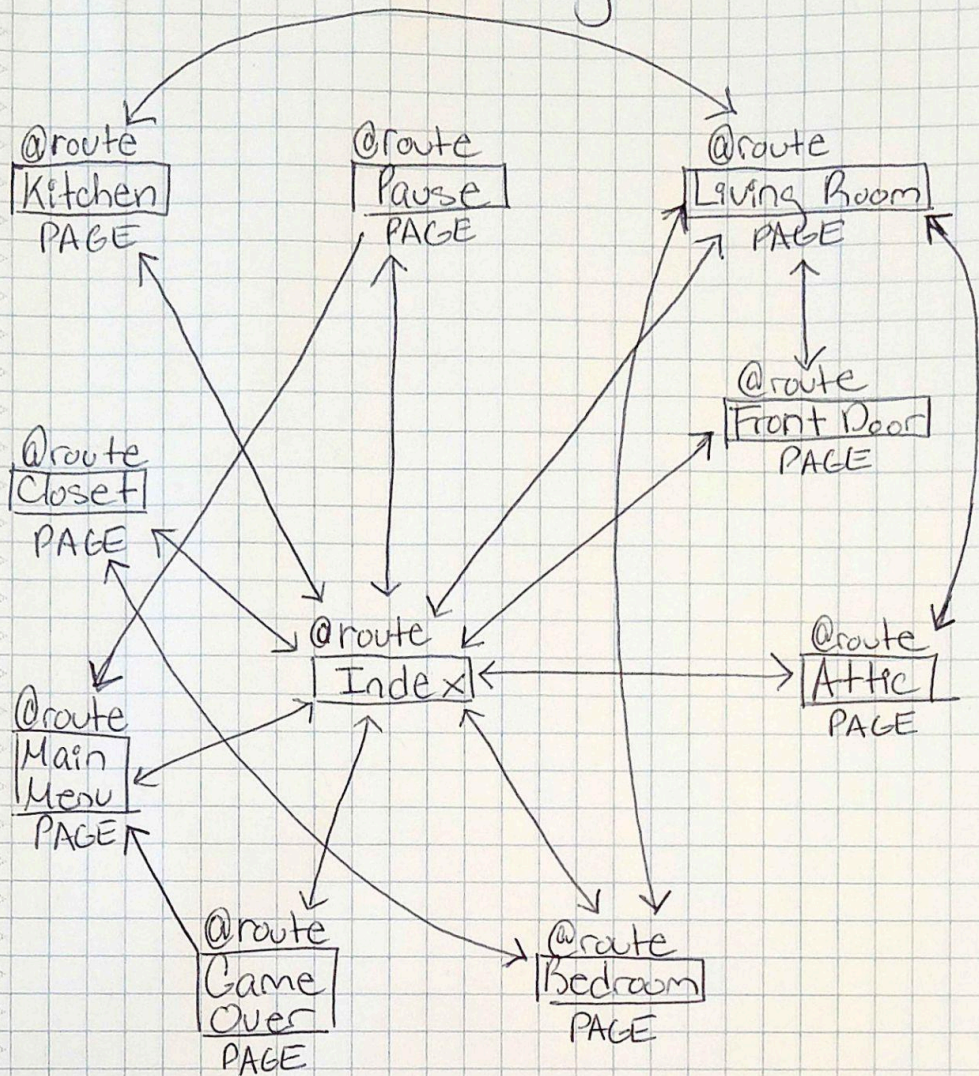 @route
Kitchen
PAGE
@route
Pause
PAGE
@route
Living Room
PAGE
@route
Front Door
PAGE
@route
Closet
PAGE
@route
Index
@route
Attic
PAGE
@route
Main
Menu
PAGE
@route
Game
Over
PAGE
@route
Bedroom
PAGE